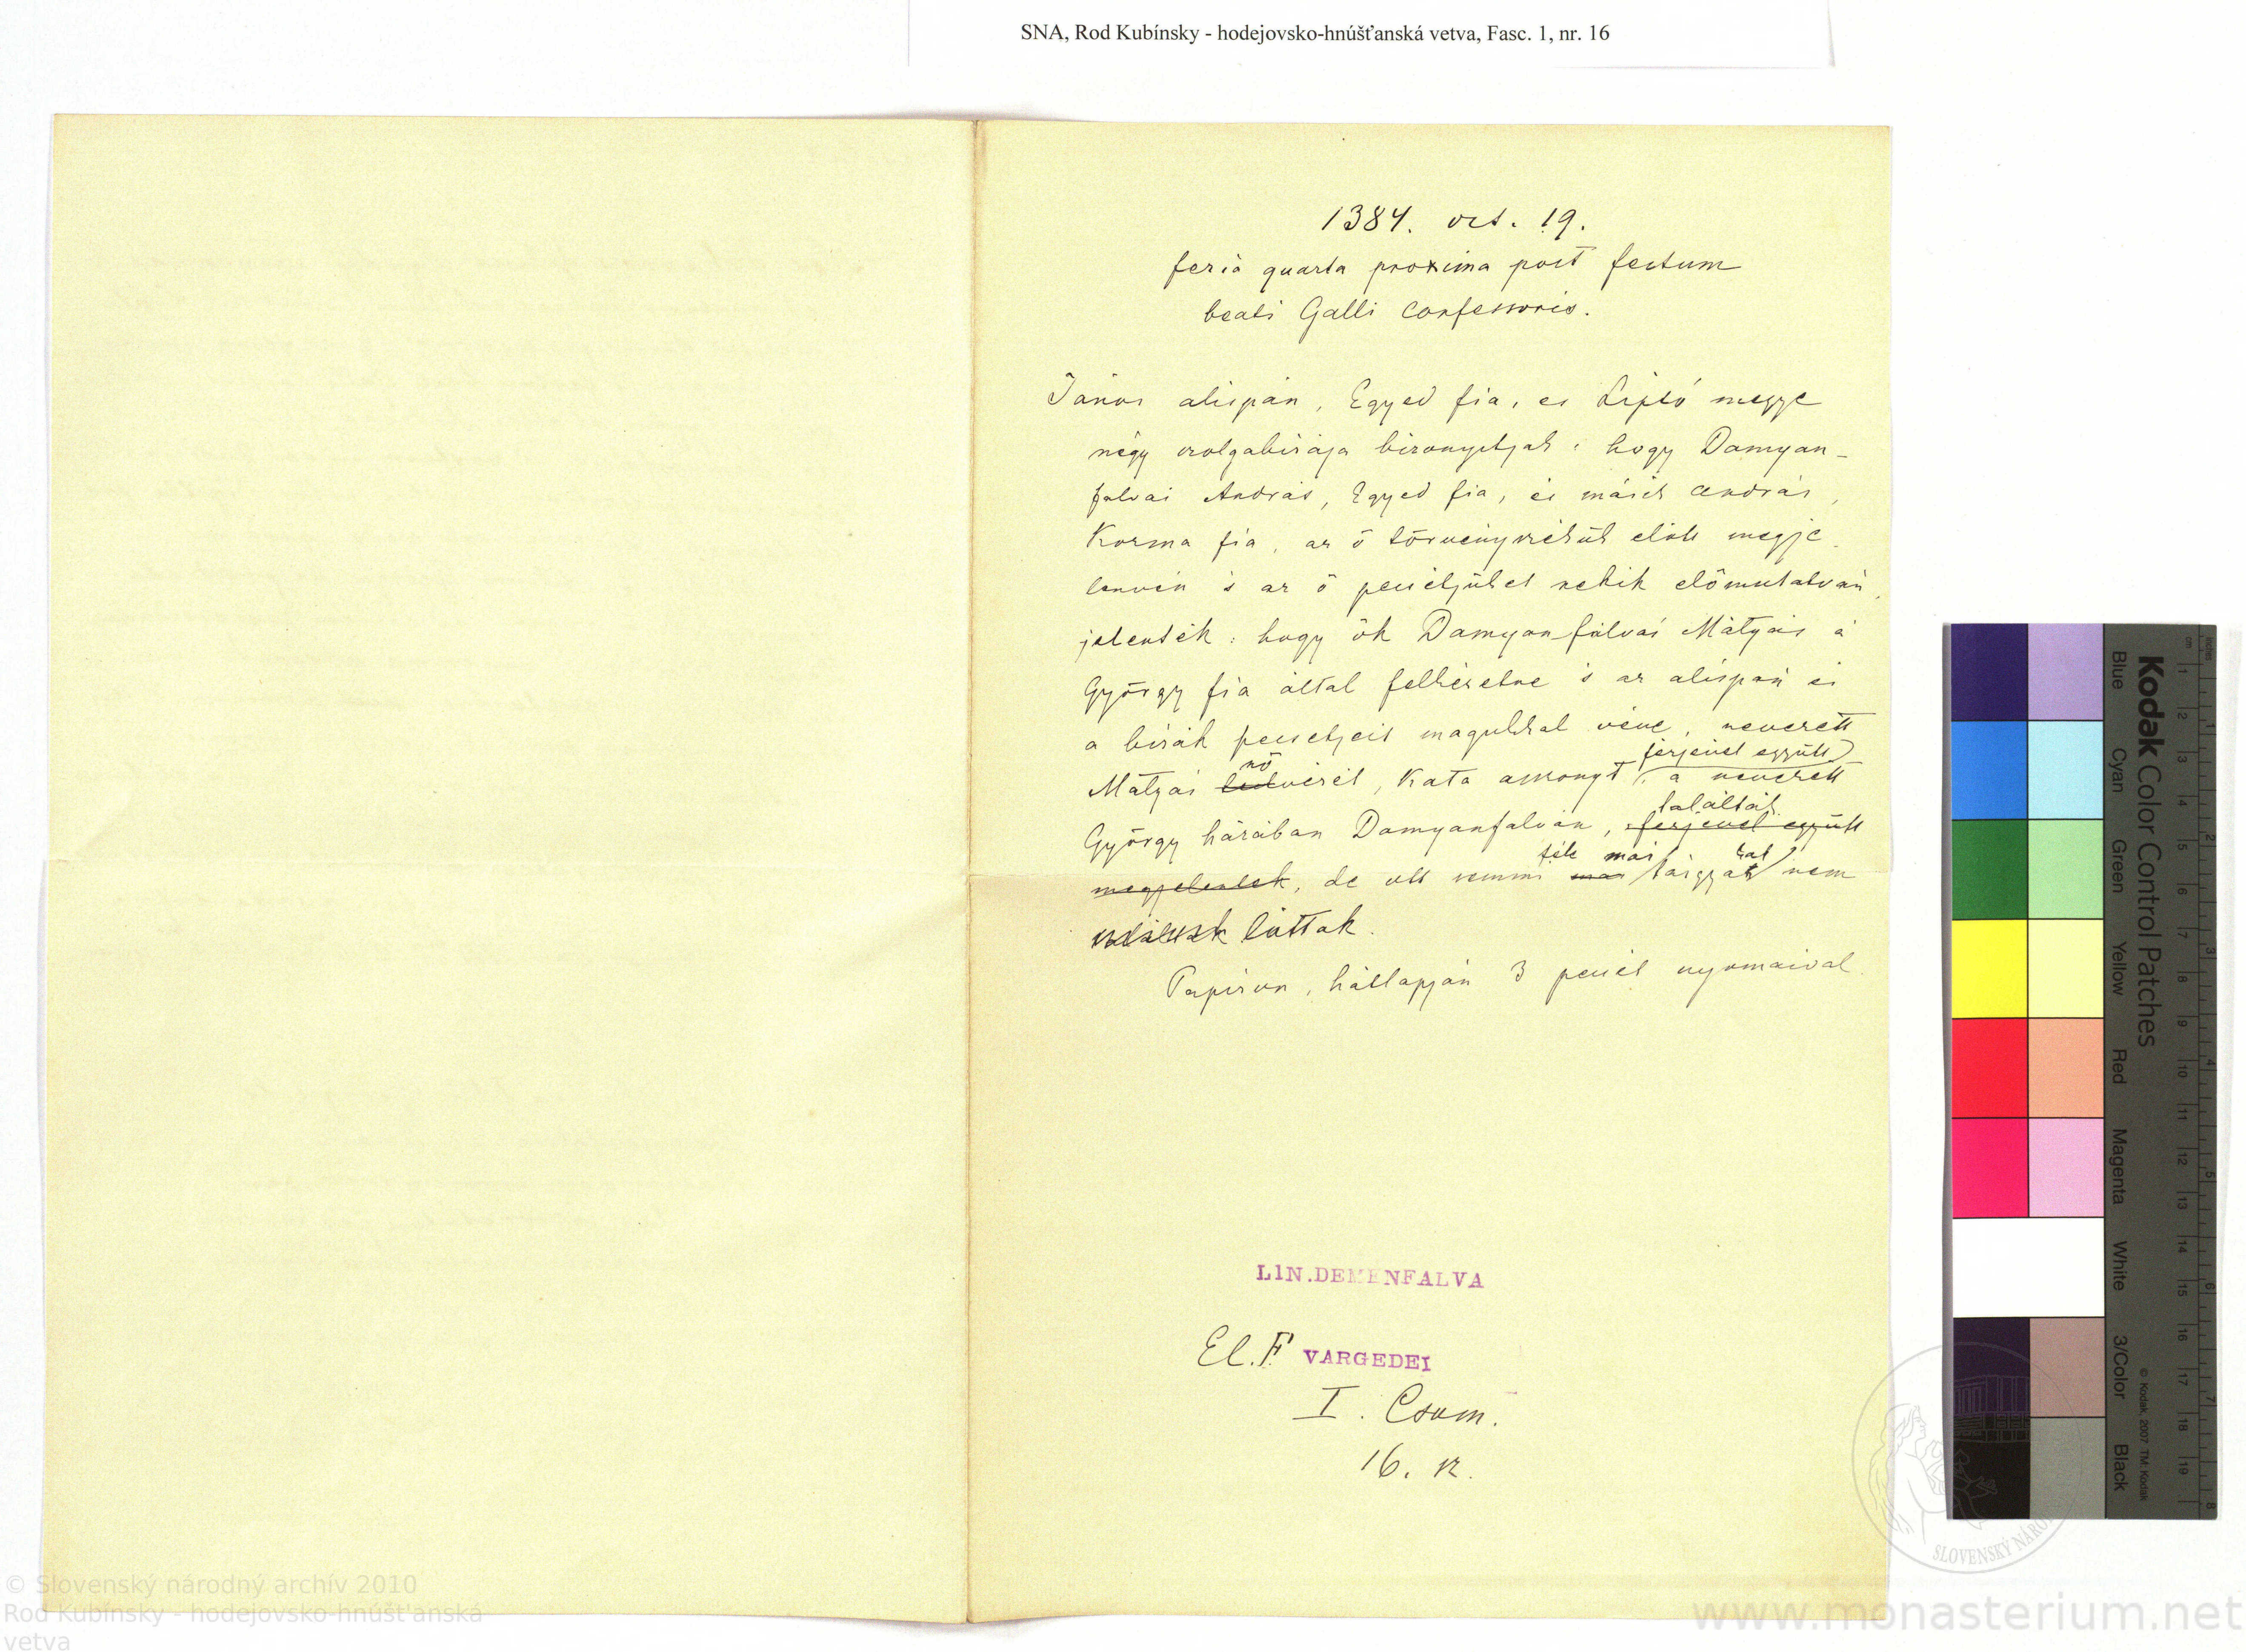 SNA, Rod Kubínsky - hodejovsko-hnúšťanská vetva, Fasc. 1, nr. 16
1384. oct. 19.
feria quarta proxima post festum
beati Galli confessoris.
János alispán, Egyed fia, es Liptó megye
négy szolgabirája bizonyitják: hogy Damyan-
falvai András, Egyed fia, és másik András,
Kozma fia, az ő törvényszékük előtt megje-
lenvén s az ő pecsétjüket nekik előmutatván,
jelenték: hogy ők Damyanfalvai Mátyás á
György fia által felkéretve s az alispán és
a birák pecsétjeit magukkal véve, nevezett
férjével együtt
nő
Mátyás vérét, Kata asszonyt, a nevezett
találták
György házában Damyanfalván, férjével együtt
féle más kat
megjelentek, de ott semmi más tárgyat nem
láttak.
Papiron, hátlapján 3 pecsét nyomaival.
LIN.DEMENFALVA
El. F. VARGEDEI
I. Csom.
16. sz.
Kodak Color Control Patches
Blue Cyan Green Yellow Red Magenta White 3/Color Black
© Kodak, 2007 TM: Kodak
inches
cm
1 2 3 4 5 6 7 8 9 10 11 12 13 14 15 16 17 18 19
1 2 3 4 5 6 7 8
SLOVENSKÝ NÁRO
© Slovenský národný archív 2010
Rod Kubínsky - hodejovsko-hnúšt'anská
vetva
www.monasterium.net